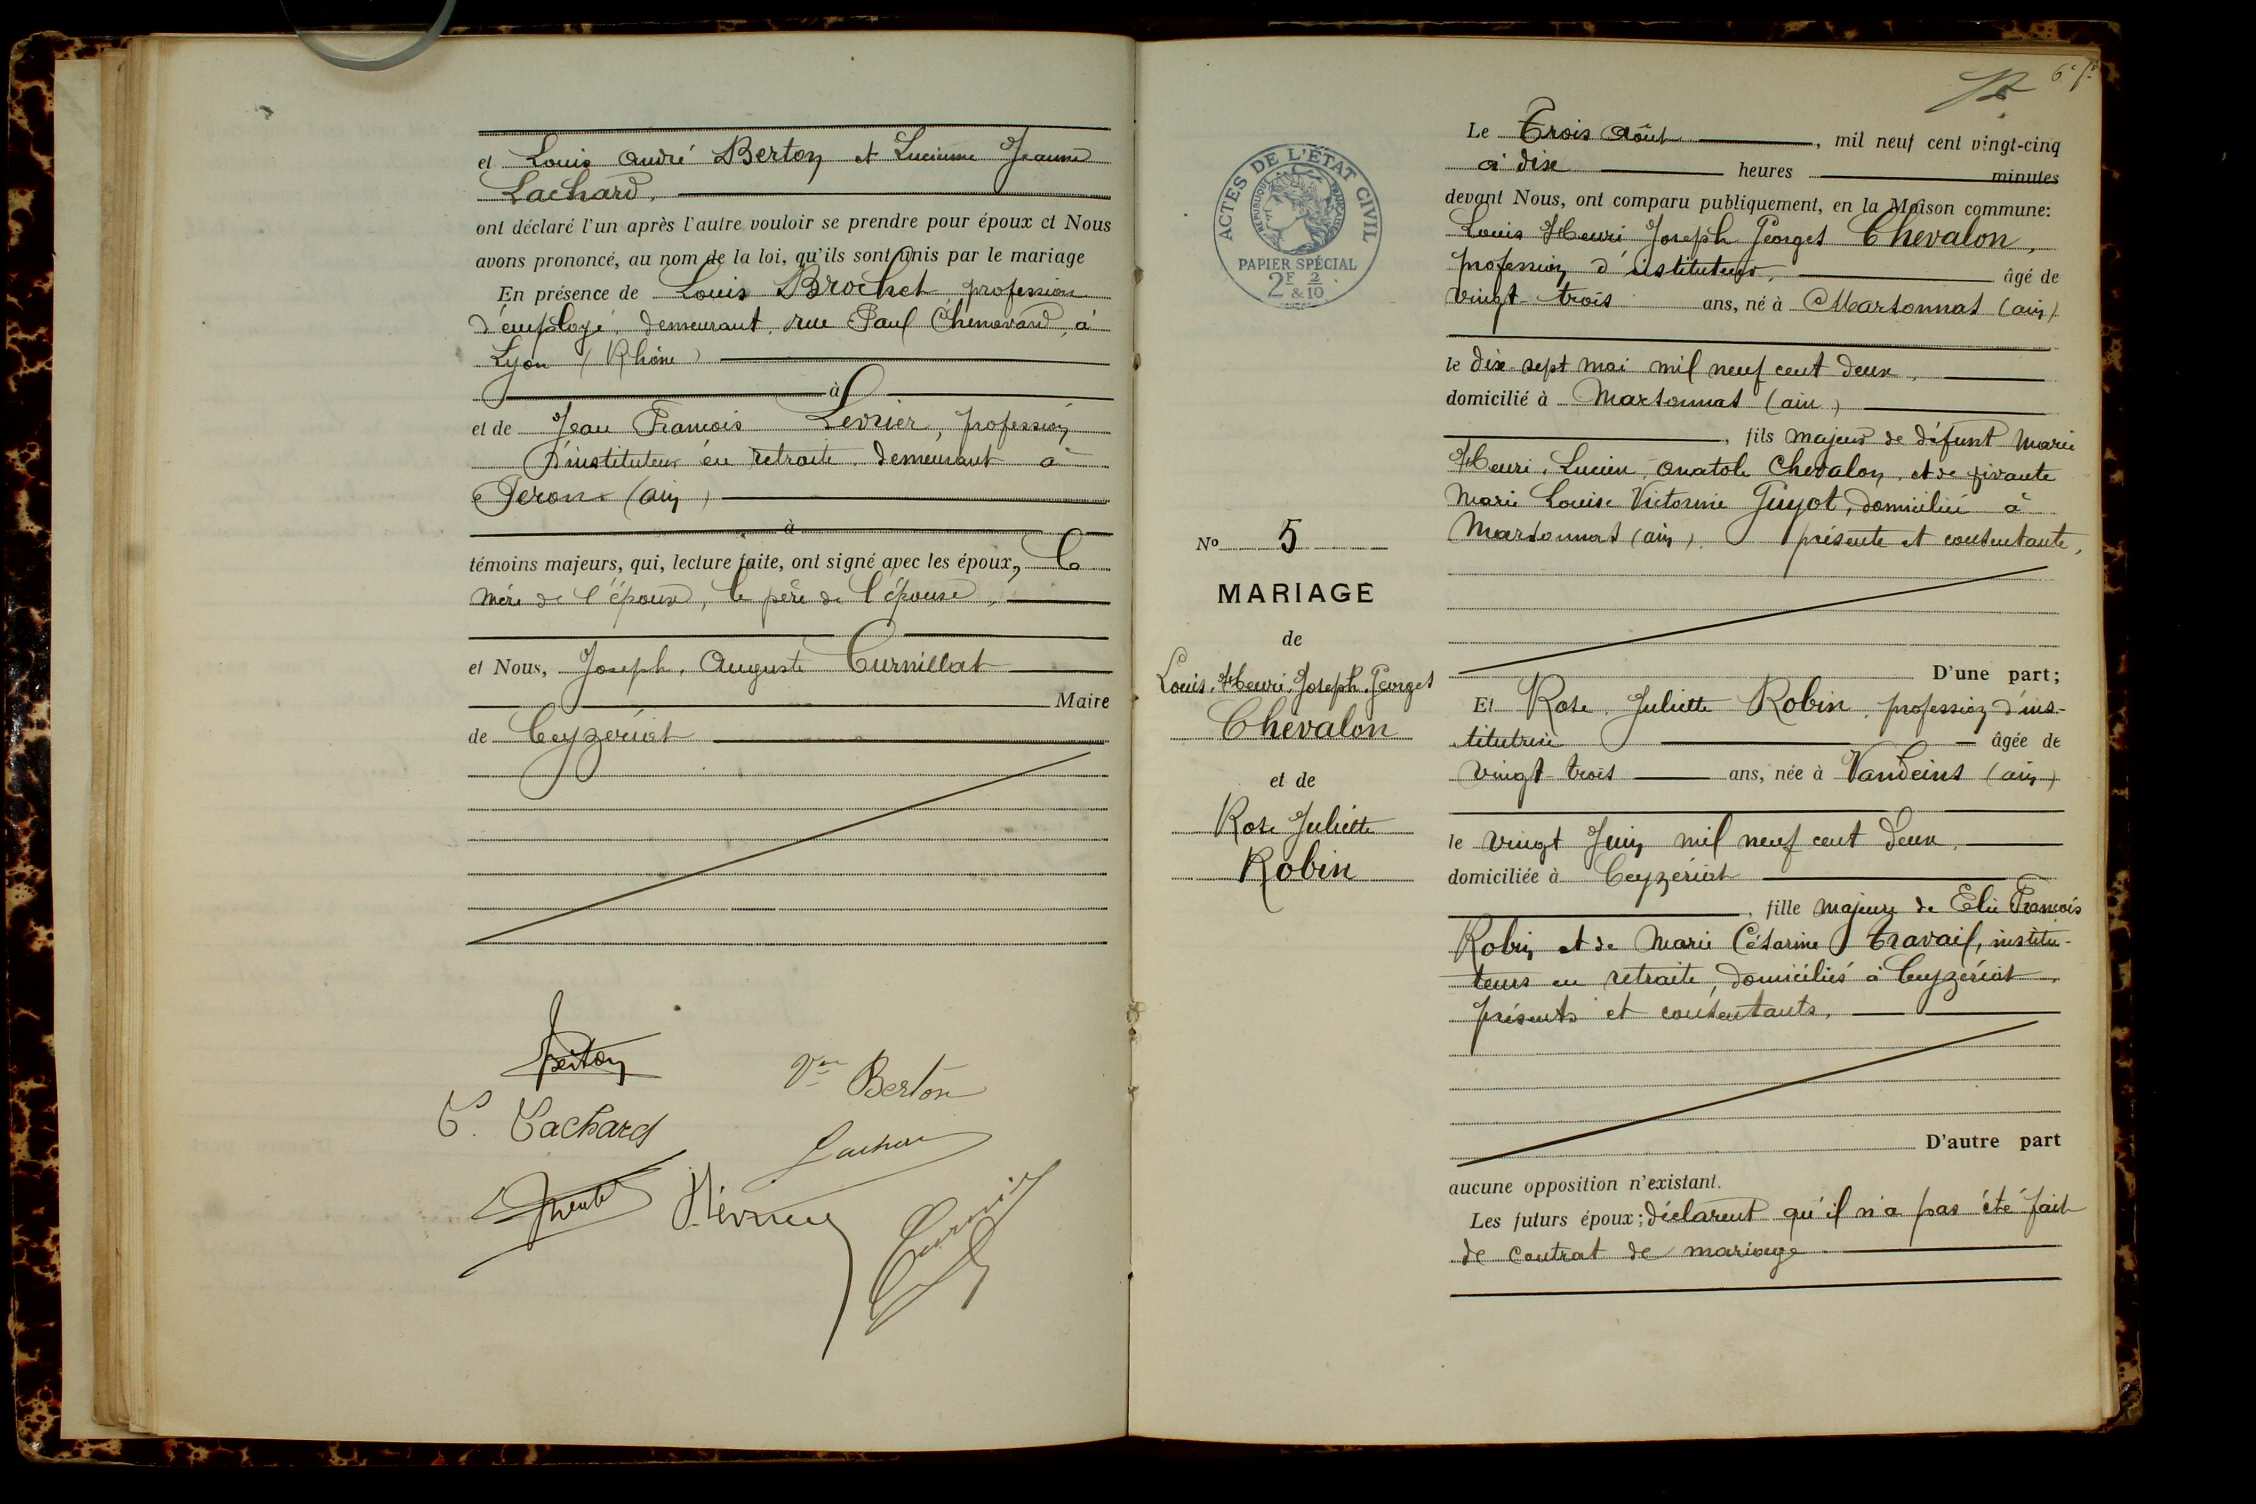 et Louis André Berton et Lucienne Jeanne
Lachard.
ont déclaré l'un après l'autre vouloir se prendre pour époux et Nous
avons prononcé, au nom de la loi, qu'ils sont unis par le mariage
En présence de Louis Brochet profession
d'employé, demeurant rue Paul Chenavard, à
Lyon (Rhône)
à
et de Jean François Levrier, profession
d'instituteur en retraite demeurant à
Peron (ain)
à
témoins majeurs, qui, lecture faite, ont signé avec les époux, la
mère de l'époux, le père de l'épouse,
et Nous, Joseph, Auguste Curnillat
Maire
de Ceyzériat
Berton
Vve Berton
Lachard
Lachard
Levrier
6e fo
Le Trois Août, mil neuf cent vingt-cinq
à dix heures minutes
devant Nous, ont comparu publiquement, en la Maison commune:
Louis Henri Joseph Georges Chevalon,
profession d'instituteur, âgé de
vingt-trois ans, né à Martonnas (ain)
le dix-sept mai mil neuf cent deux,
domicilié à Martonnas (ain)
, fils majeur de défunt Marie
Henri, Lucien, Anatole Chevalon, et de vivante
Marie Louise Victorine Guyot, domiciliée à
Martonnas (ain). présente et consentante,
D'une part;
Et Rose, Juliette Robin, profession d'ins-
titutrice âgée de
vingt-trois ans, née à Vandeins (ain)
le vingt Juin mil neuf cent deux,
domiciliée à Ceyzériat
, fille majeure de Elie François
Robin et de Marie Césarine Travail, institu-
teurs en retraite, domiciliés à Ceyzériat,
présents et consentants.
D'autre part
aucune opposition n'existant.
Les futurs époux; déclarent qu'il n'a pas été fait
de contrat de mariage
ACTES DE L'ÉTAT CIVIL
RÉPUBLIQUE FRANÇAISE
PAPIER SPÉCIAL
2F & 2/10
No 5
MARIAGE
de
Louis, Henri, Joseph, Georges
Chevalon
et de
Rose Juliette
Robin